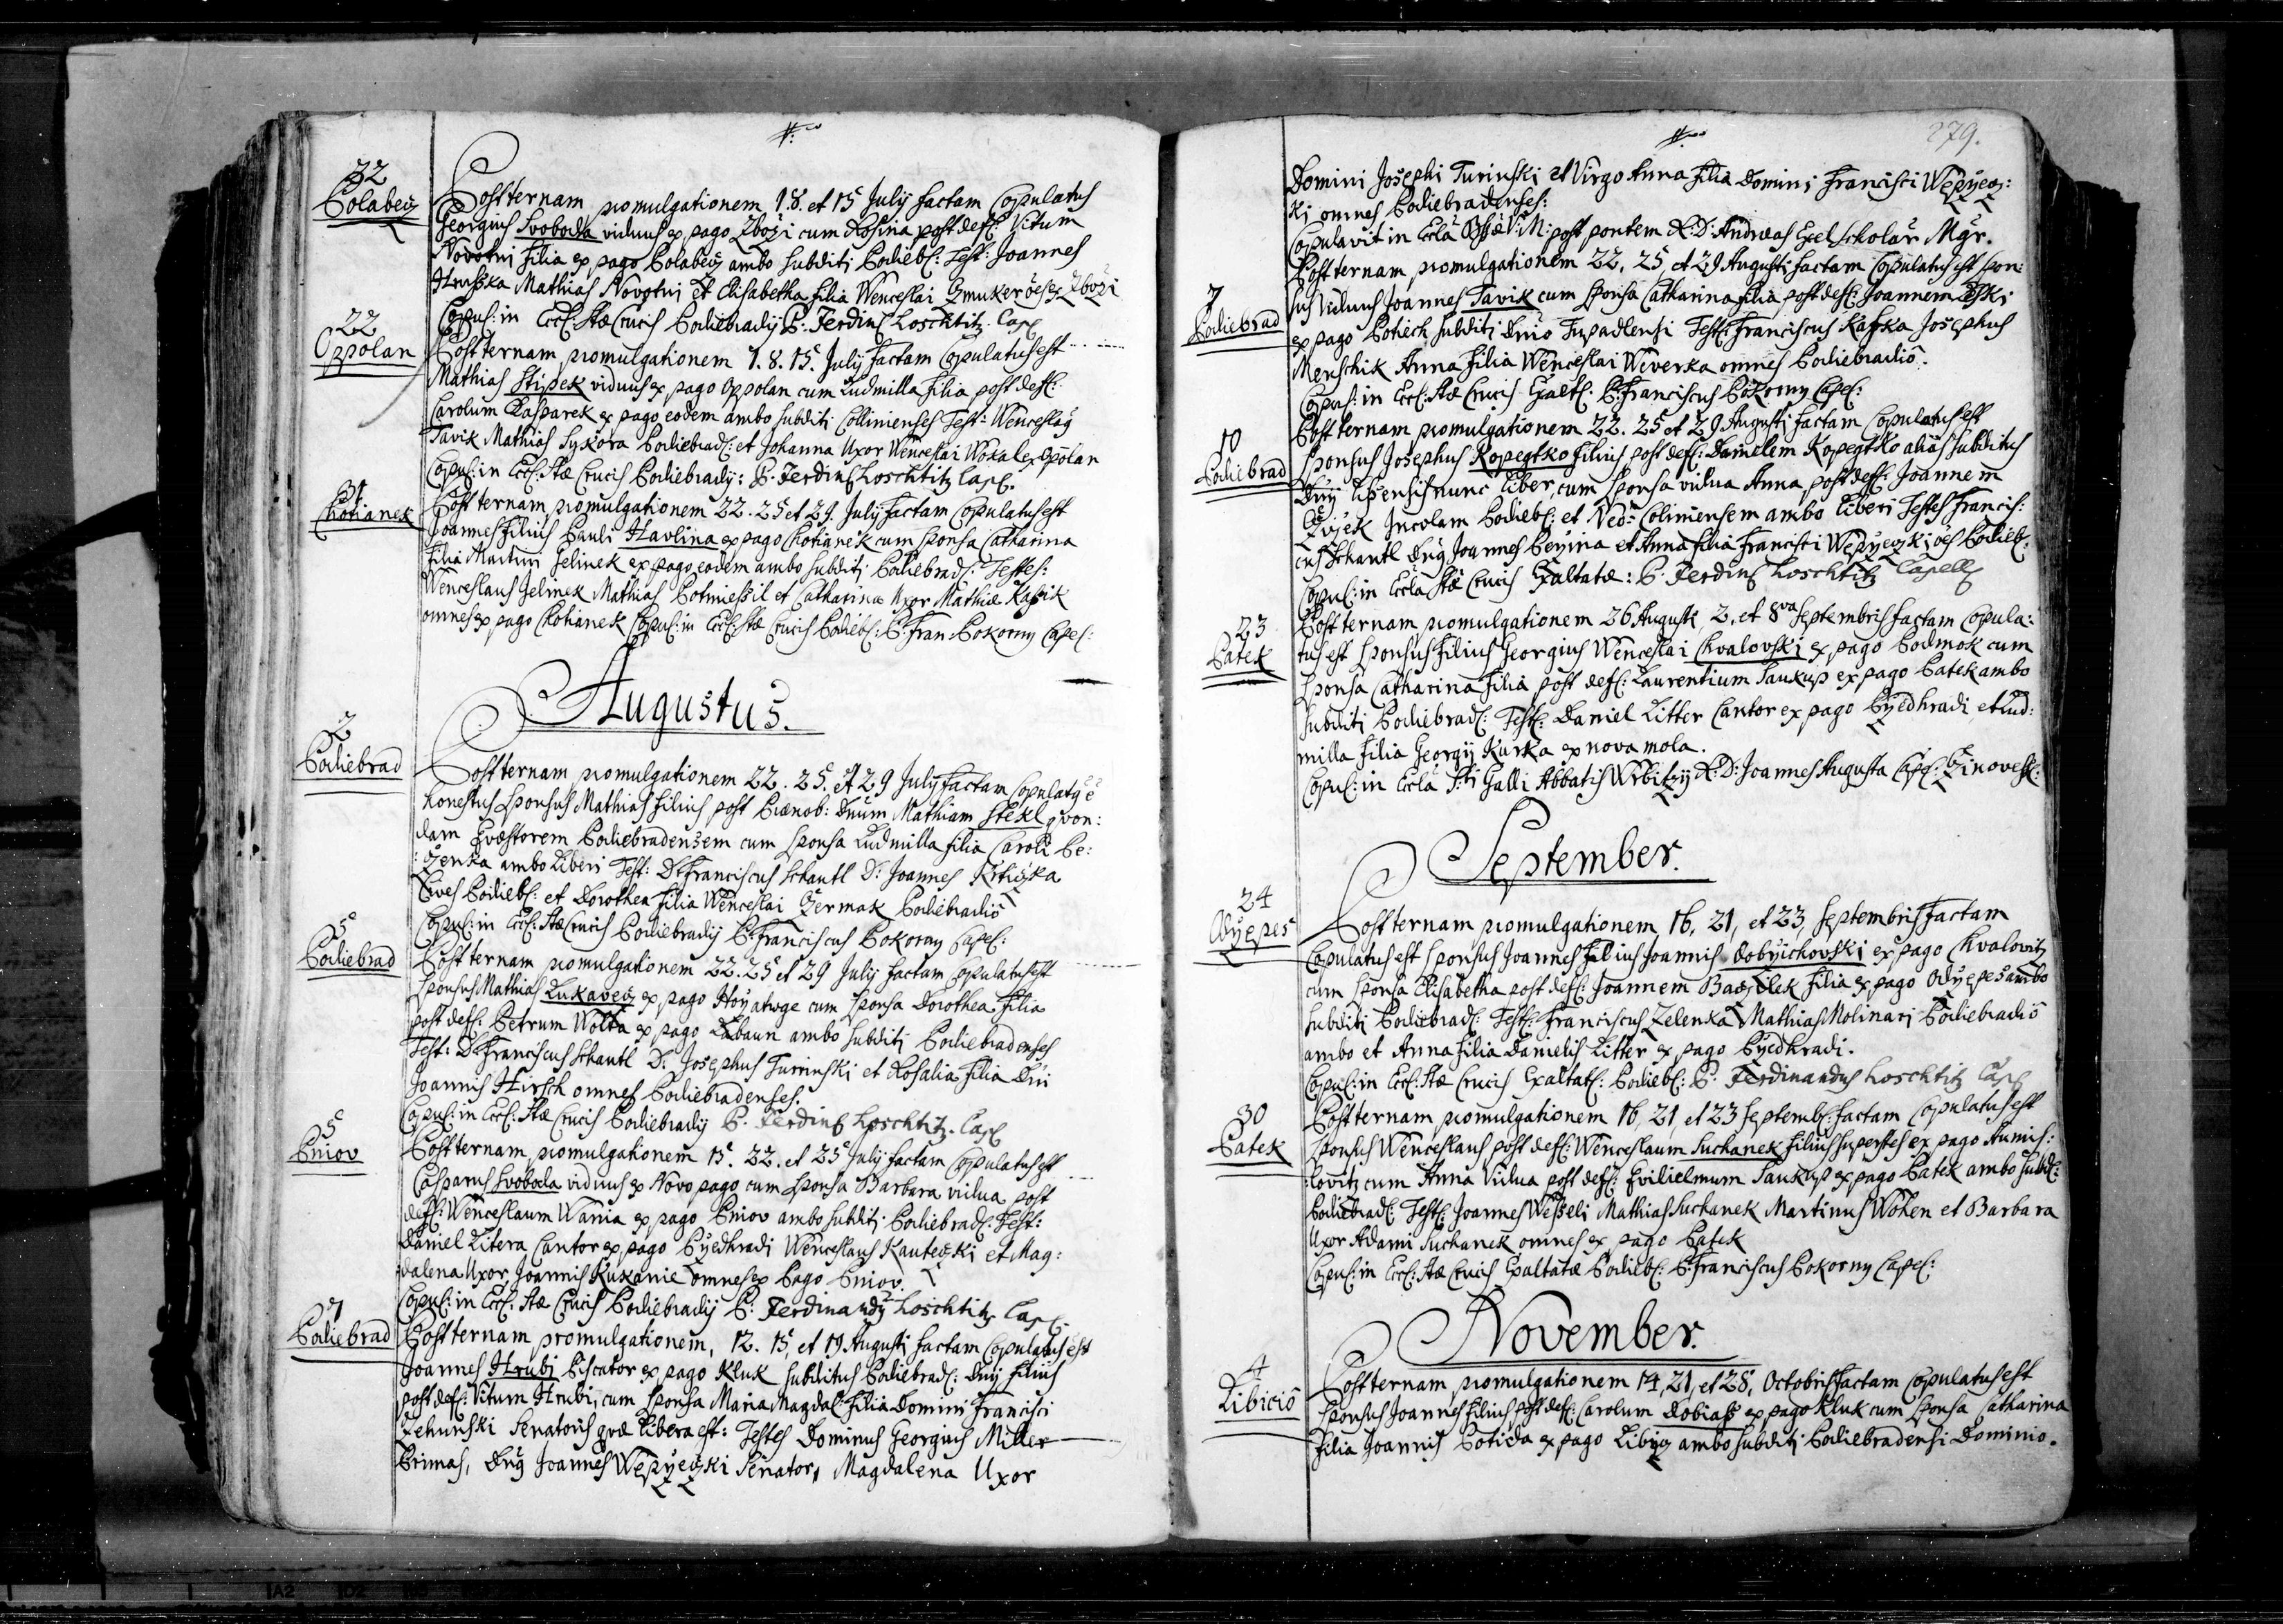 22
Polabecz
Post ternam promulgationem 1. 8. et 15 July factam Copulatus
Georgius Svoboda viduus ex pago Zbozi cum Rosina post deff: Vitum
Novotni filia ex pago Polabecz ambo subditi Podieb: Test: Joannes
Hruska Mathias Novotni et Elisabetha filia Wenceslai oes ex Zbozi
Copul: in Eccl: Stae Crucis Podiebrady P. Ferdin Loschtitz Cap
22
Oppolan
Post ternam promulgationem 1. 8. 15. July factam Copulatus est
Mathias Stipek viduus ex pago Oppolan cum Ludmilla filia post deff:
Carolum Kasparek ex pago eodem ambo subditi Collinienses Test: Wenceslaq
Tavik Mathias Sykora Podiebrad: et Johanna Uxor Wenceslai Wokal ex Opolan
Copul: in Eccl: Stae Crucis Podiebrady: P. Ferdin Loschtitz Cap.
31
Chotianek
Post ternam promulgationem 22. 25 et 29. July factam Copulatus est
Joannes filius Pauli Havlina ex pago Chotianek cum sponsa Catharina
filia Martini Jelinek ex pago eodem ambo subditi Podiebrad: Testes:
Wenceslaus Jelinek Mathias Potmessil et Catharina Uxor Mathiae
omnes ex pago Chotianek Copul: in Eccl: Stae Crucis Podieb: P. Fran Pokorny Capel:
Augustus.
2
Podiebrad
Post ternam promulgationem 22. 25. et 29 July factam Copulatq e
honestus sponsus Mathias filius post Praenob: Dnum Mathiam Stekl qvon:
dam Qvaestorem Podiebradensem cum sponsa Ludmilla filia Caroli Be:
ambo Liberi Test: D: Franciscus Schantl D: Joannes Krticzka
Cives Podieb: et Dorothea filia Wenceslai Czermak Podiebradio
Copul: in Eccl: Stae Crucis Podiebrady P. Franciscus Pokorny Capel:
5
Podiebrad
Post ternam promulgationem 22. 25 et 29 July factam Copulatus est
sponsus Mathias Lukavecz ex pago cum sponsa Dorothea filia
post deff: Petrum Wolta ex pago Libaun ambo subditi Podiebradenses
Test: D: Franciscus Schantl D. Josephus Turinski et Rosalia filia Dni
Joannis Hirsch omnes Podiebradenses.
Copul: in Eccl: Stae Crucis Podiebrady P. Ferdin Loschtitz. Cap
5
Pniov
Post ternam promulgationem 15. 22. et 25 July factam Copulatus est
Casparus Svoboda viduus ex Novo pago cum sponsa Barbara vidua post
deff: Wenceslaum Wania ex pago Pniov ambo subditi Podiebrad: Test:
Daniel Litera Cantor ex pago Przedhradi Wenceslaus Kauteczki et Mag:
dalena Uxor Joannis Kukanie omnes ex Pago Pniov.
Copul: in Eccl: Stae Crucis Podiebrady P. Ferdinandq Loschtitz Cap.
7
Podiebrad
Post ternam promulgationem, 12. 15, et 19 Augusti factam Copulatus est
Joannes Hrubi Piscator ex pago Kluk subditus Podiebrad: Dny filius
post deff: Vitum Hrubi, cum sponsa Maria Magdal: filia Domini Francisci
Zehunski Senatoris qvae libera est: Testes Dominus Georgius Miller
Primas, Dnq Joannes Weprzeczki Senator, Magdalena Uxor
279.
Domini Josephi Turinski et Virgo Anna filia Domini Francisci Weprzecz:
ki omnes Podiebradenses:
Copulavit in Eccla B: V: M: post pontem R: D: Andreas Exel Scholar Mgr.
7
Podiebrad
Post ternam promulgationem 22, 25 et 29 Augusti factam Copulatus est spon:
sus viduus Joannes Tavik cum sponsa Catharina filia post deff: Joannem
ex pago Potiech subditi Dnio Tupadlensi Test: Franciscus Kafka Josephus
Menschik Anna filia Wenceslai Weverka omnes Podiebradio.
Copul: in Eccl: Stae Crucis Exalt: P. Franciscus Pokorny Capel:
10
Podiebrad
Post ternam promulgationem 22. 25 et 29 Augusti factam Copulatus est
sponsus Josephus Kopegtko filius post deff: Danielem Kopegtko alias subditus
Dny nunc liber, cum sponsa vidua Anna post deff: Joannem
Incolam Podieb: et Coliniensem ambo Liberi Testes Francis:
cus Schantl Dnq Joannes et Anna filia Francisci Weprzeczki oes Podieb:
Copul: in Eccla Stae Crucis Exaltatae: P. Ferdin Loschtitz Capell
23
Patek
Post ternam promulgationem 26 Augusti, 2, et 8va Septembris factam Copula:
tus est sponsus filius Georgius Wenceslai Chvalovski ex pago Podmok cum
sponsa Catharina filia post deff: Laurentium Saukup ex pago Patek ambo
subditi Podiebrad: Test: Daniel Litter Cantor ex pago Przedhradi et Lud:
milla filia Georgy Kurka ex nova mola.
Copul: in Eccla Sti Galli Abbatis Wrbitzy R: D: Joannes Augusta Cap:
September.
24
Odrzepes
Post ternam promulgationem 16, 21, et 23, Septembris factam
Copulatus est sponsus Joannes filius Joannis Dobrzichovski ex pago Chvalovitz
cum sponsa Elisabetha post deff: Joannem filia ex pago Odrzepes ambo
subditi Podiebrad: Test: Franciscus Zelenka Mathias Molinari Podiebradio
ambo et Anna filia Danielis Litter ex pago Przedhradi.
Copul: in Eccl: Stae Crucis Exaltat: Podieb: P. Ferdinandus Loschtitz Cap
30
Patek
Post ternam promulgationem 16, 21, et 23 Septemb: factam Copulatus est
sponsus Wenceslaus post deff: Wenceslaum Suchanek filius superstes ex pago
lovitz cum Anna Vidua post deff: Gvilielmum Saukup ex pago Patek ambo subd:
Podiebrad: Test: Joannes Wesseli Mathias Suchanek Martinus Woken et Barbara
Uxor Adami Suchanek omnes ex pago Patek
Copul: in Eccl: Stae Crucis Exaltatae Podieb: P. Franciscus Pokorny Capel:
November.
4
Libicio
Post ternam promulgationem 14, 21, et 28, Octobris factam Copulatus est
sponsus Joannes filius post deff: Carolum Dobiass ex pago Kluk cum sponsa Catharina
filia Joannis Potida ex pago Libicz ambo subditi Podiebradensi Dominio.